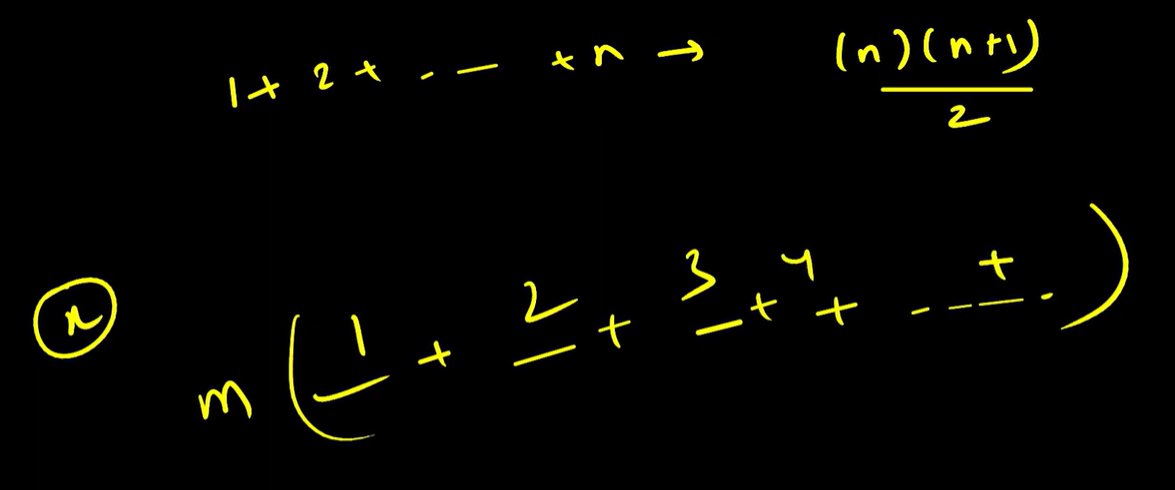 1 + 2 + . — + n → (n)(n+1)/2
n m ( 1 + 2 + 3 + 4 + - - — + . )